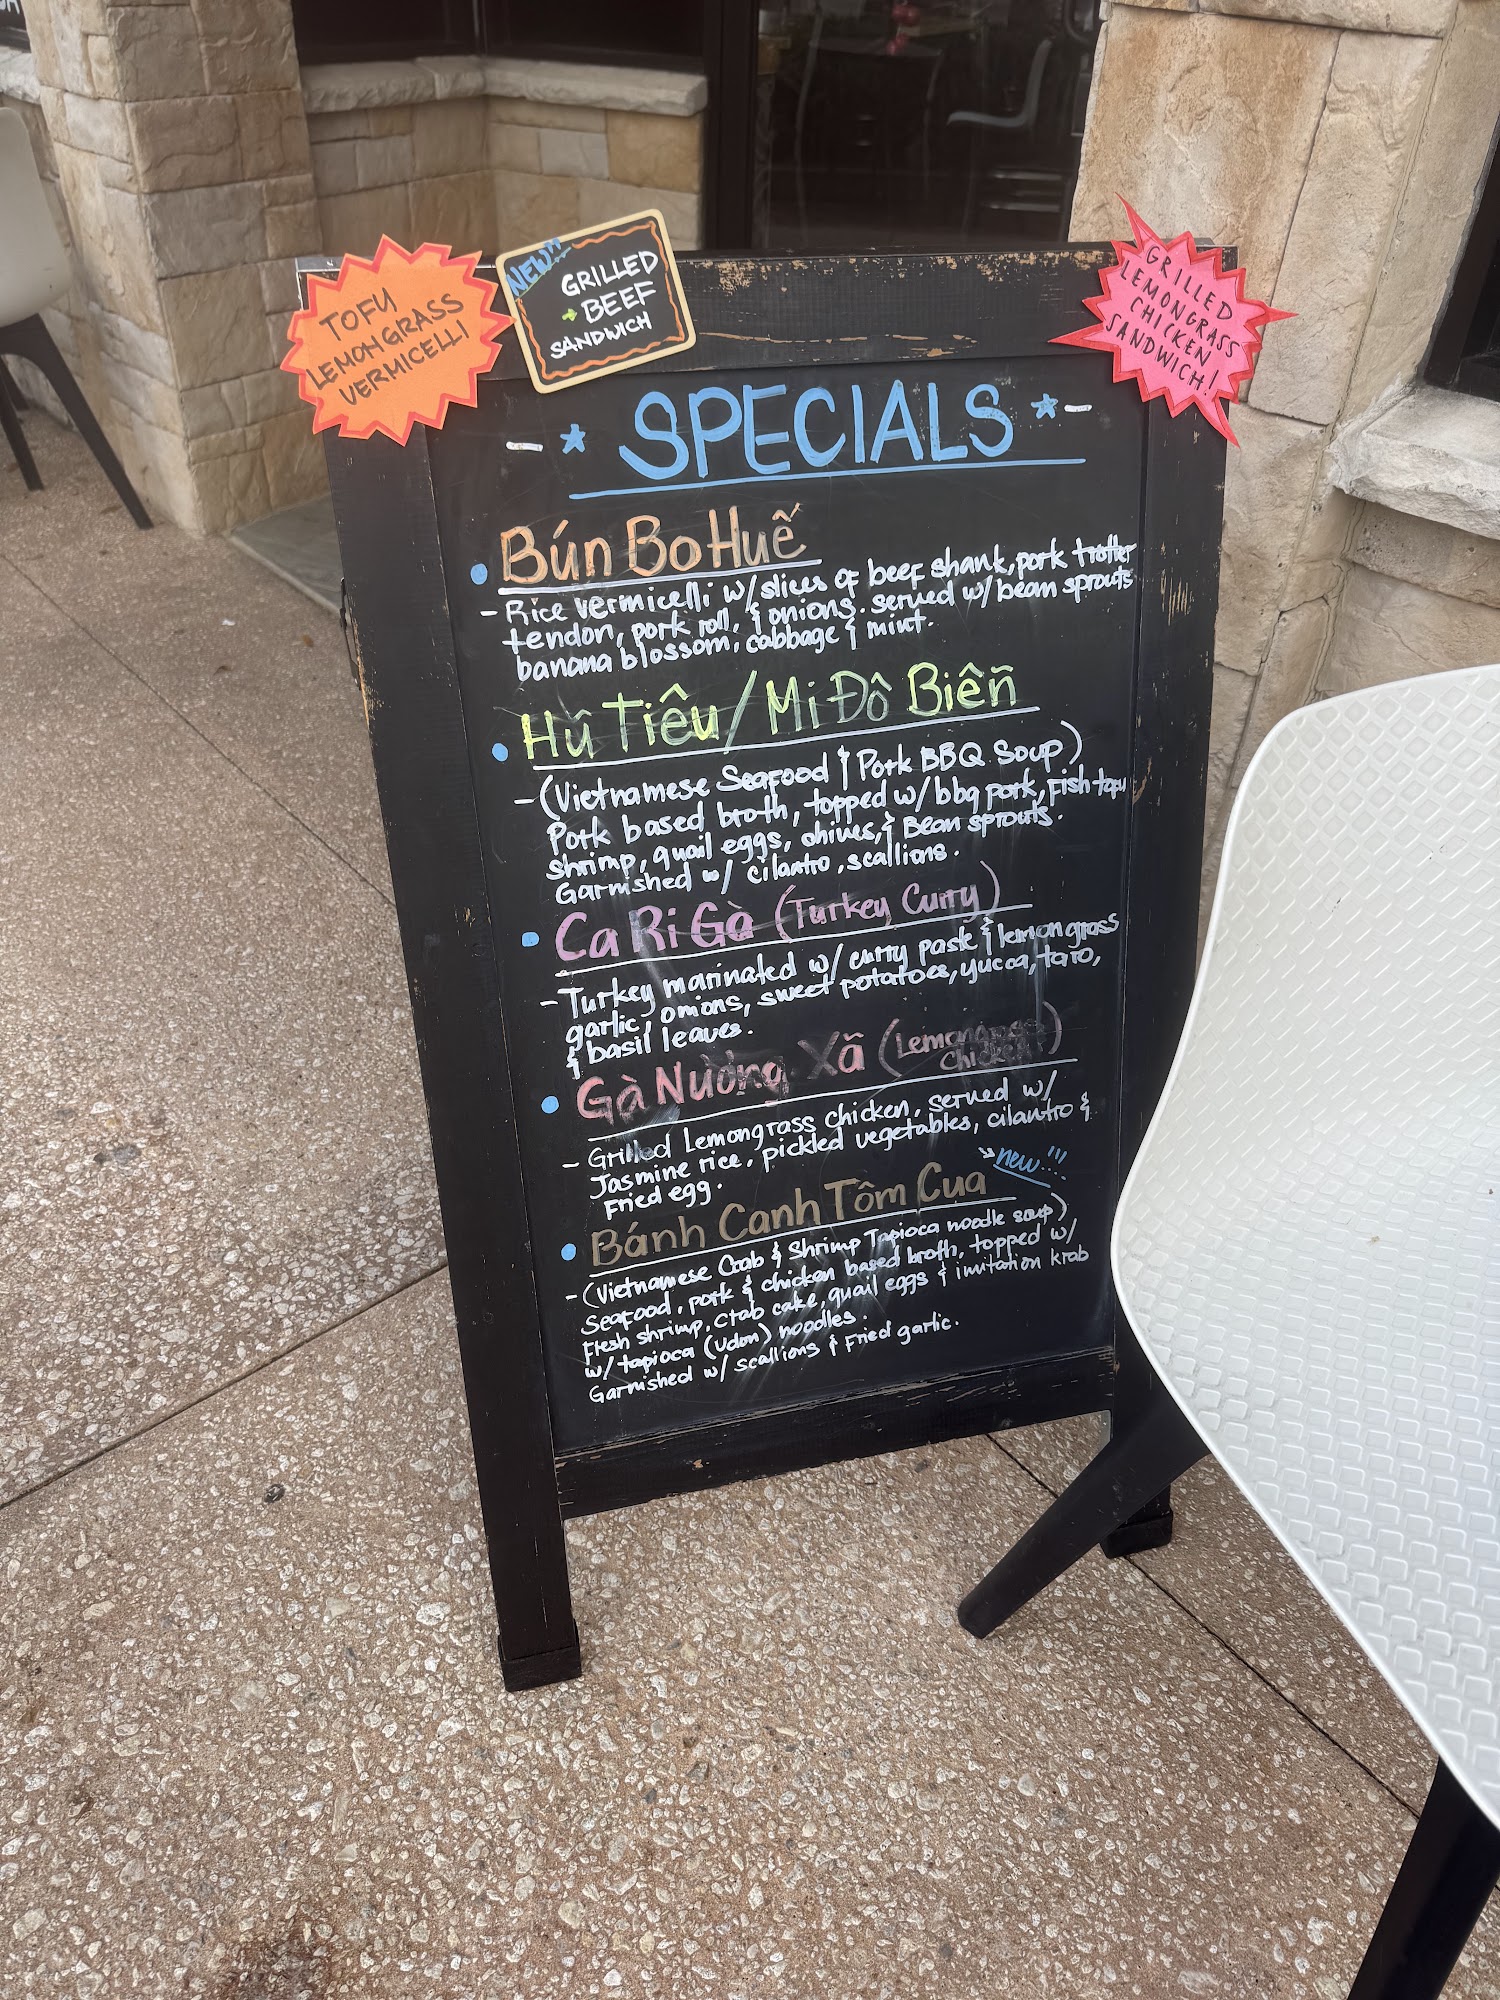 TOFU
LEMONGRASS
VERMICELLI
NEW!!
GRILLED
BEEF
SANDWICH
GRILLED
LEMONGRASS
CHICKEN
SANDWICH!
SPECIALS
Bún Bo Huế
- Rice vermicelli w/slices of beef shank, pork trotter
tendon, pork roll, & onions. served w/bean sprouts
banana blossom, cabbage & mint.
Hũ Tiêu/Mi Đô Biên̄
- (Vietnamese Seafood & Pork BBQ Soup)
Pork based broth, topped w/bbq pork, Fish tofu
shrimp, quail eggs, chives, & Bean sprouts.
Garnished w/ cilantro, scallions.
Ca Ri Gà (Turkey Curry)
- Turkey marinated w/ curry paste & lemongrass
garlic, onions, sweet potatoes, yucca, taro,
& basil leaves.
Gà Nường Xã (Lemongrass
Chicken)
- Grilled Lemongrass chicken, served w/
Jasmine rice, pickled vegetables, cilantro &
Fried egg.
new!!!
Bánh Canh Tôm Cua
- (Vietnamese Crab & Shrimp Tapioca noodle soup)
Seafood, pork & chicken based broth, topped w/
Fresh shrimp, crab cake, quail eggs & imitation krab
w/tapioca (udon) noodles.
Garnished w/ scallions & Fried garlic.